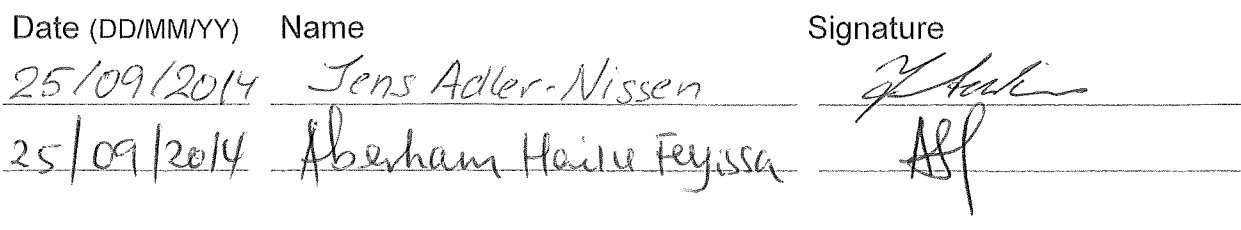 Date (DD/MM/YY) Name Signature
25/09/2014 Jens Adler-Nissen
25/09/2014 Aberham Hailu Feyissa